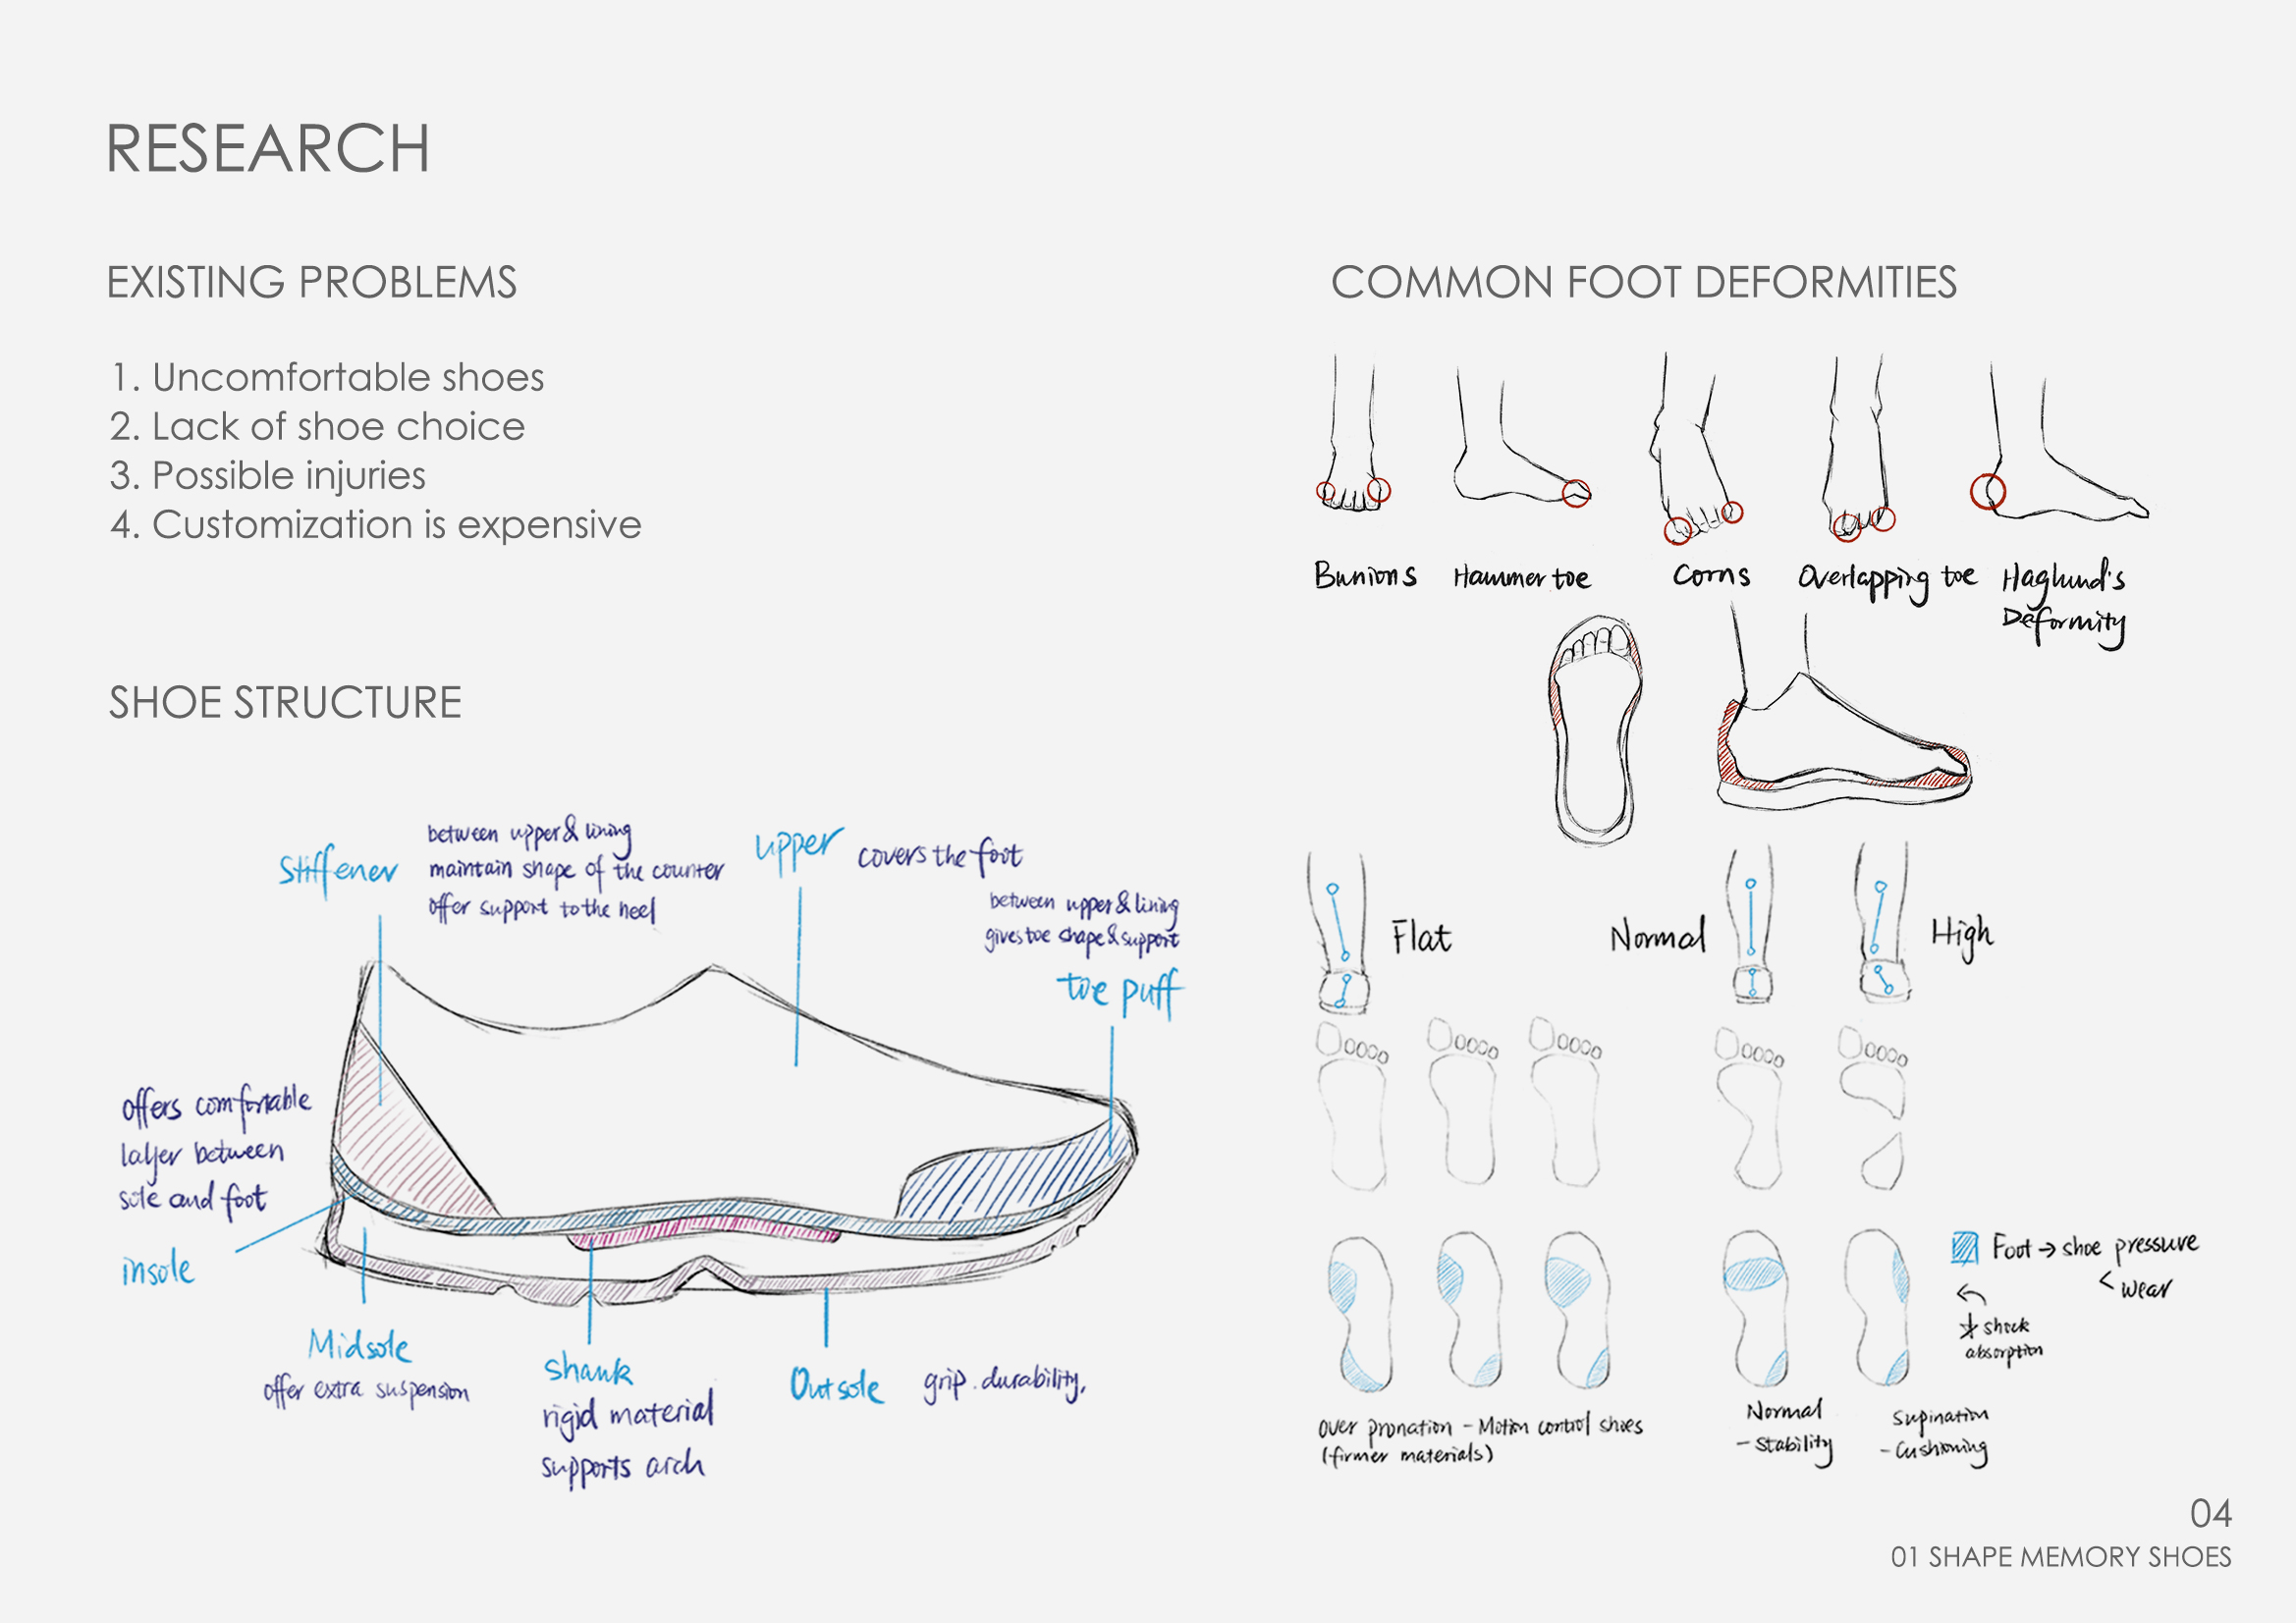 RESEARCH
EXISTING PROBLEMS
1. Uncomfortable shoes
2. Lack of shoe choice
3. Possible injuries
4. Customization is expensive
SHOE STRUCTURE
stiffener
between upper & lining
maintain shape of the counter
offer support to the heel
upper
covers the foot
between upper & lining
gives toe shape & support
toe puff
offers comfortable
layer between
sole and foot
insole
Midsole
offer extra suspension
shank
rigid material
supports arch
Outsole
grip. durability,
COMMON FOOT DEFORMITIES
Bunions
Hammer toe
Corns
Overlapping toe
Haglund's
Deformity
Flat
Normal
High
Foot → shoe pressure
< wear
shock
absorption
over pronation - Motion control shoes
(firmer materials)
Normal
- Stability
Supination
- Cushioning
04
01 SHAPE MEMORY SHOES